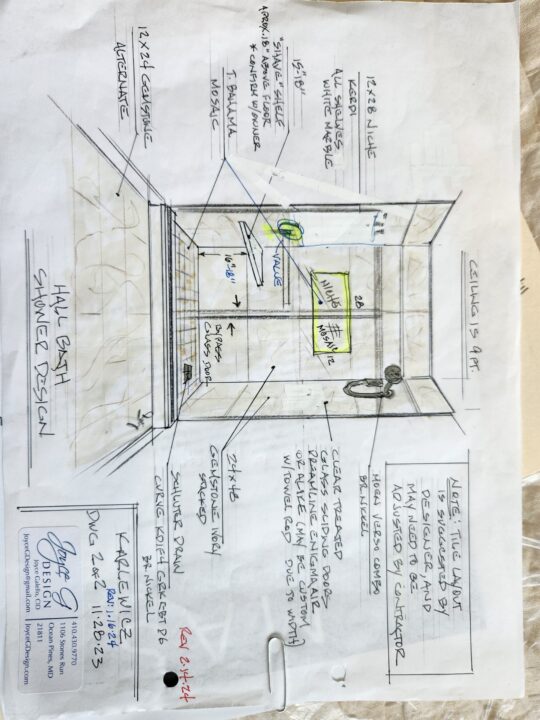 12x24 GEMSTONE
ALTERNATE
"SHAVE" SHELF
APROX. 18" ABOVE FLOOR
* CONFIRM W/OWNER
15"-18"
T. BAHAMA
MOSAIC
12 x 28 NICHE
KERDI
ALL SHELVES
WHITE MARBLE
CEILING IS 9 FT.
VALVE
16"-18"
28
NICHE
MOSAIC
12
BYPASS
GLASS DOOR
HALL BATH
SHOWER DESIGN
24 x 48
GEMSTONE IVORY
STACKED
SCHLUTER DRAIN
BR NICKEL
CLEAR TREATED
GLASS SLIDING DOORS
DREAMLINE ENIGMA AIR
OR ALIKE (MAY BE CUSTOM
W/TOWEL ROD DUE TO WIDTH)
MOEN VERSO COMBO
BR NICKEL
NOTE: TILE LAYOUT
IS SUGGESTED BY
DESIGNER, AND
MAY NEED TO BE
ADJUSTED BY CONTRACTOR
KARLEWICZ
REV: 1.16.24
DWG 2 OF 2 11.28.23
REV 2.14.24
Joyce G
DESIGN
Joyce Galello, CID
JoyceGDesign@gmail.com
410.430.9770
1106 Stones Run
Ocean Pines, MD
21811
JoyceGDesign.com